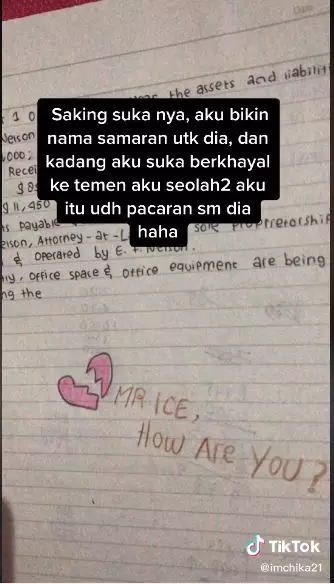 the assets and liabilit
1 0
Nelson
Saking suka nya, aku bikin
nama samaran utk dia, dan
kadang aku suka berkhayal
ke temen aku seolah2 aku
itu udh pacaran sm dia
haha
Recei
11,450
Payable
Attorney-at-L
sole proprietorship
& operated by E. F. Nelson.
office space & office equipment are being
the
MR ICE,
HOW ARE YOU?
TikTok
@imchika21